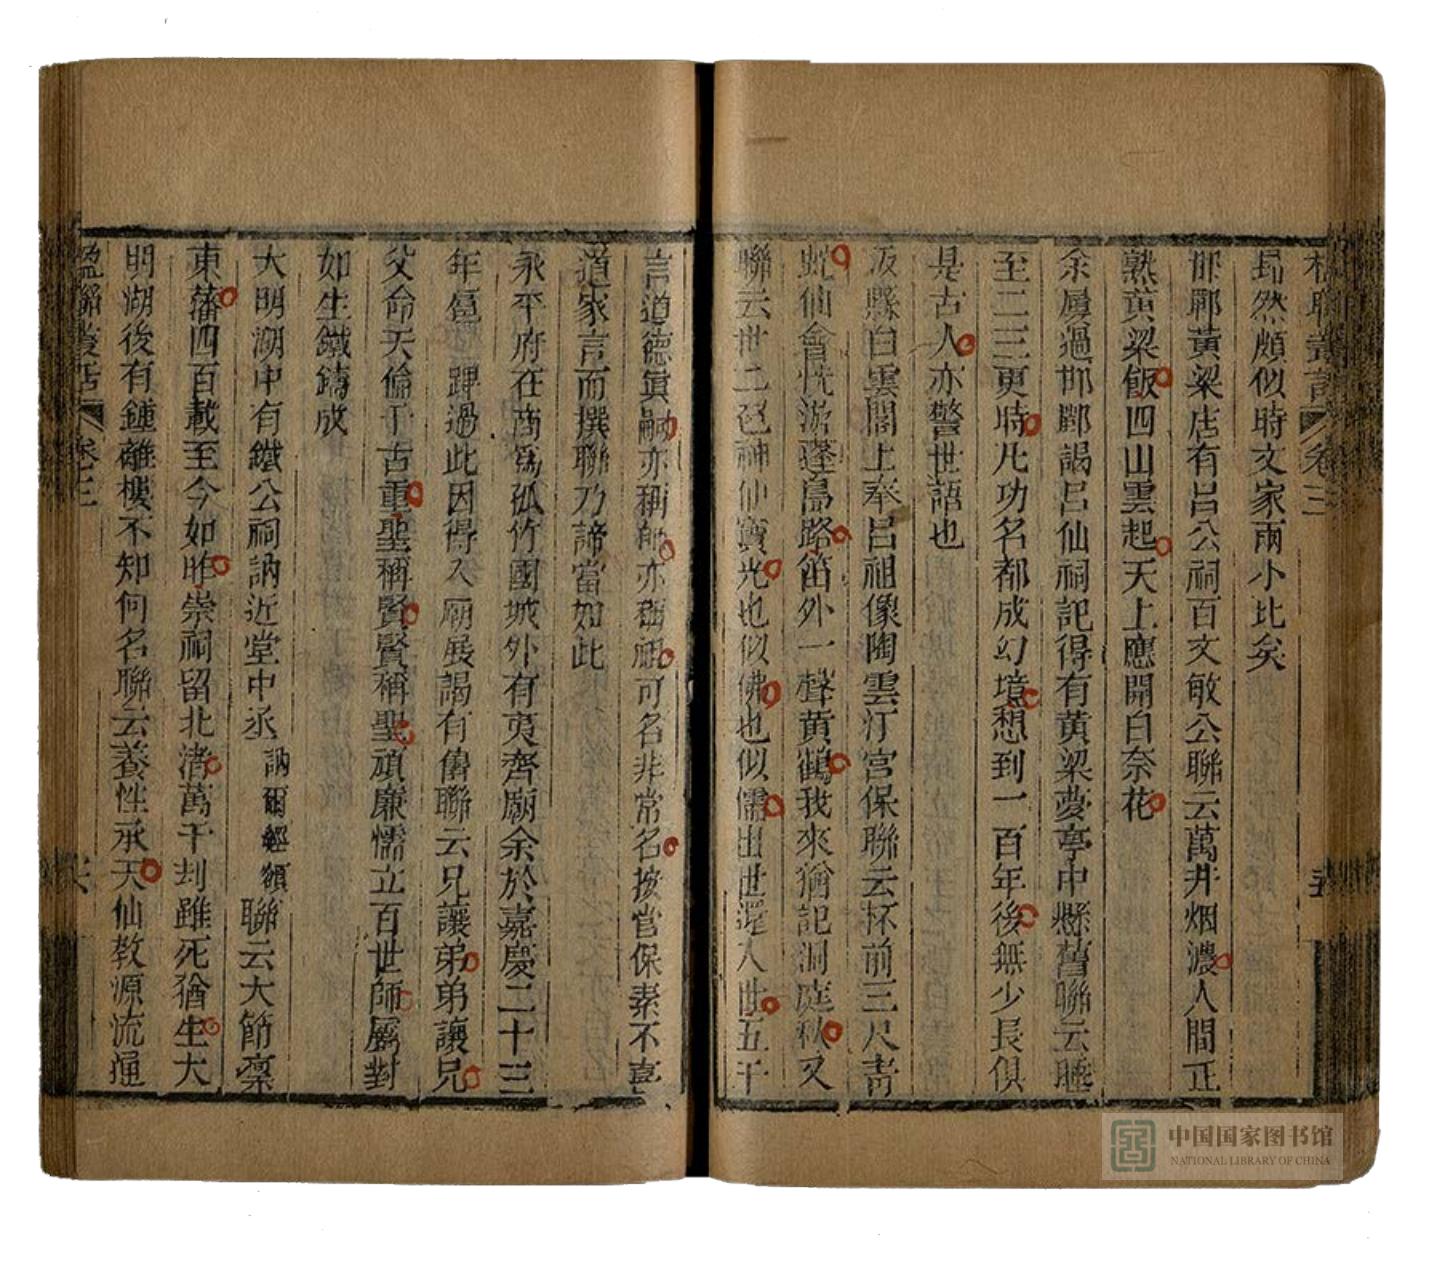 楹聯叢話 卷三 五
昻然頗似時文家兩小比矣
邯鄲黃粱店有呂公祠百文敏公聯云萬井烟濃人間正
熟黃粱飯四山雲起天上應開白奈花
余屢過邯鄲謁呂仙祠記得有黃粱夢亭中懸舊聯云睡
至二三更時凡功名都成幻境想到一百年後無少長俱
是古人亦警世語也
滋縣白雲閣上奉呂祖像陶雲汀宮保聯云杯前三尺青
虵仙會恍游蓬島路笛外一聲黃鶴我來猶記洞庭秋又
聯云世二邑神仙寶光也似佛也似儒出世還人世五千
言道德眞嗣亦稱師亦稱祖可名非常名按宮保素不喜
道家言而撰聯乃諦當如此
永平府在商爲孤竹國城外有夷齊廟余於嘉慶二十三
年扈蹕過此因得入廟展謁有舊聯云兄讓弟弟讓兄
父命天倫千古重聖稱賢賢稱聖頑廉懦立百世師屬對
如生鐵鑄成
大明湖中有鐵公祠訥近堂中丞訥爾經額聯云大節凜
東藩四百載至今如昨崇祠留北渚萬千刦雖死猶生大
明湖後有鍾離樓不知何名聯云養性承天仙教源流通
楹聯叢話 卷三 六
中国国家图书馆
NATIONAL LIBRARY OF CHINA